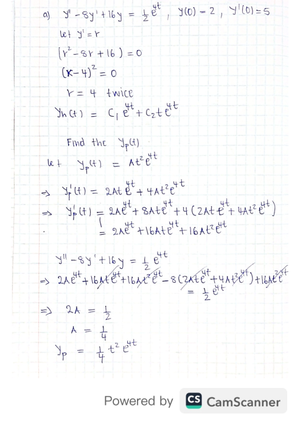 a) y" - 8y' + 16y = 1/2 e^4t , y(0) - 2 , y'(0) = 5
let y' = r
(r² - 8r + 16) = 0
(x - 4)² = 0
r = 4 twice
yh(t) = C₁ e^4t + C₂ t e^4t
Find the yp(t)
let yp(t) = At² e^4t
⇒ yp'(t) = 2At e^4t + 4At² e^4t
⇒ yp'(t) = 2A e^4t + 8At e^4t + 4(2At e^4t + 4At² e^4t)
= 2A e^4t + 16At e^4t + 16At² e^4t
y'' - 8y' + 16y = 1/2 e^4t
⇒ 2A e^4t + 16At e^4t + 16At² e^4t - 8(2At e^4t + 4At² e^4t) + 16At² e^4t
= 1/2 e^4t
⇒ 2A = 1/2
A = 1/4
yp = 1/4 t² e^4t
Powered by CS CamScanner